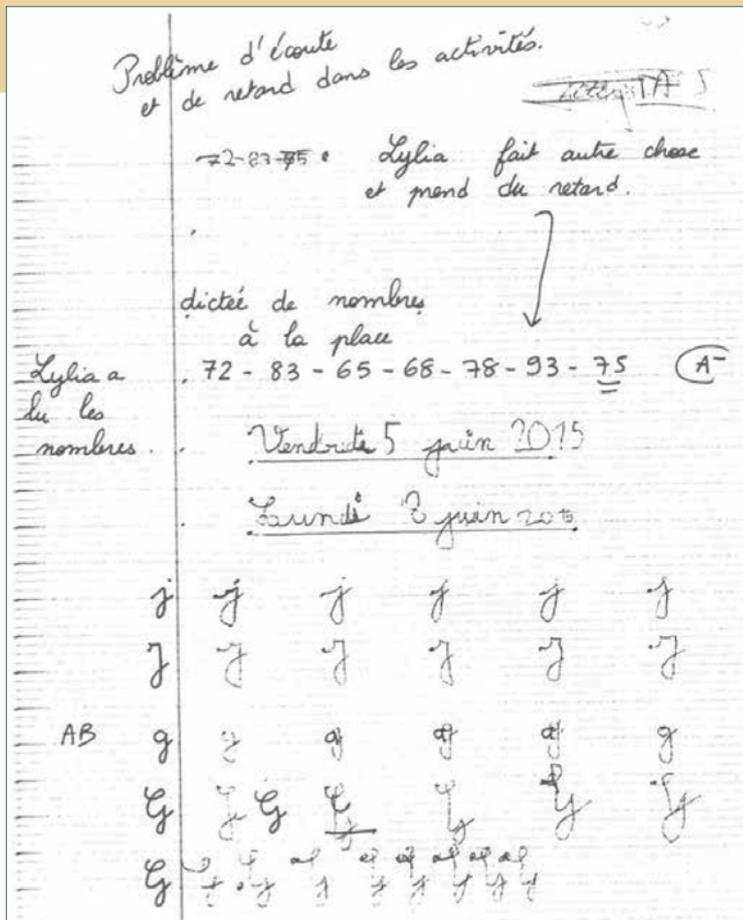 Problème d'écoute
et de retard dans les activités.
72-83-75 • Lylia fait autre chose
et prend du retard.
dictée de nombres
à la place
72 - 83 - 65 - 68 - 78 - 93 - 75 A-
Lylia a
lu les
nombres.
Vendredi 5 juin 2015
Lundi 8 juin 2015
j j j j j j
J J J J J J
AB g g g g g g
G G G G G G G
G